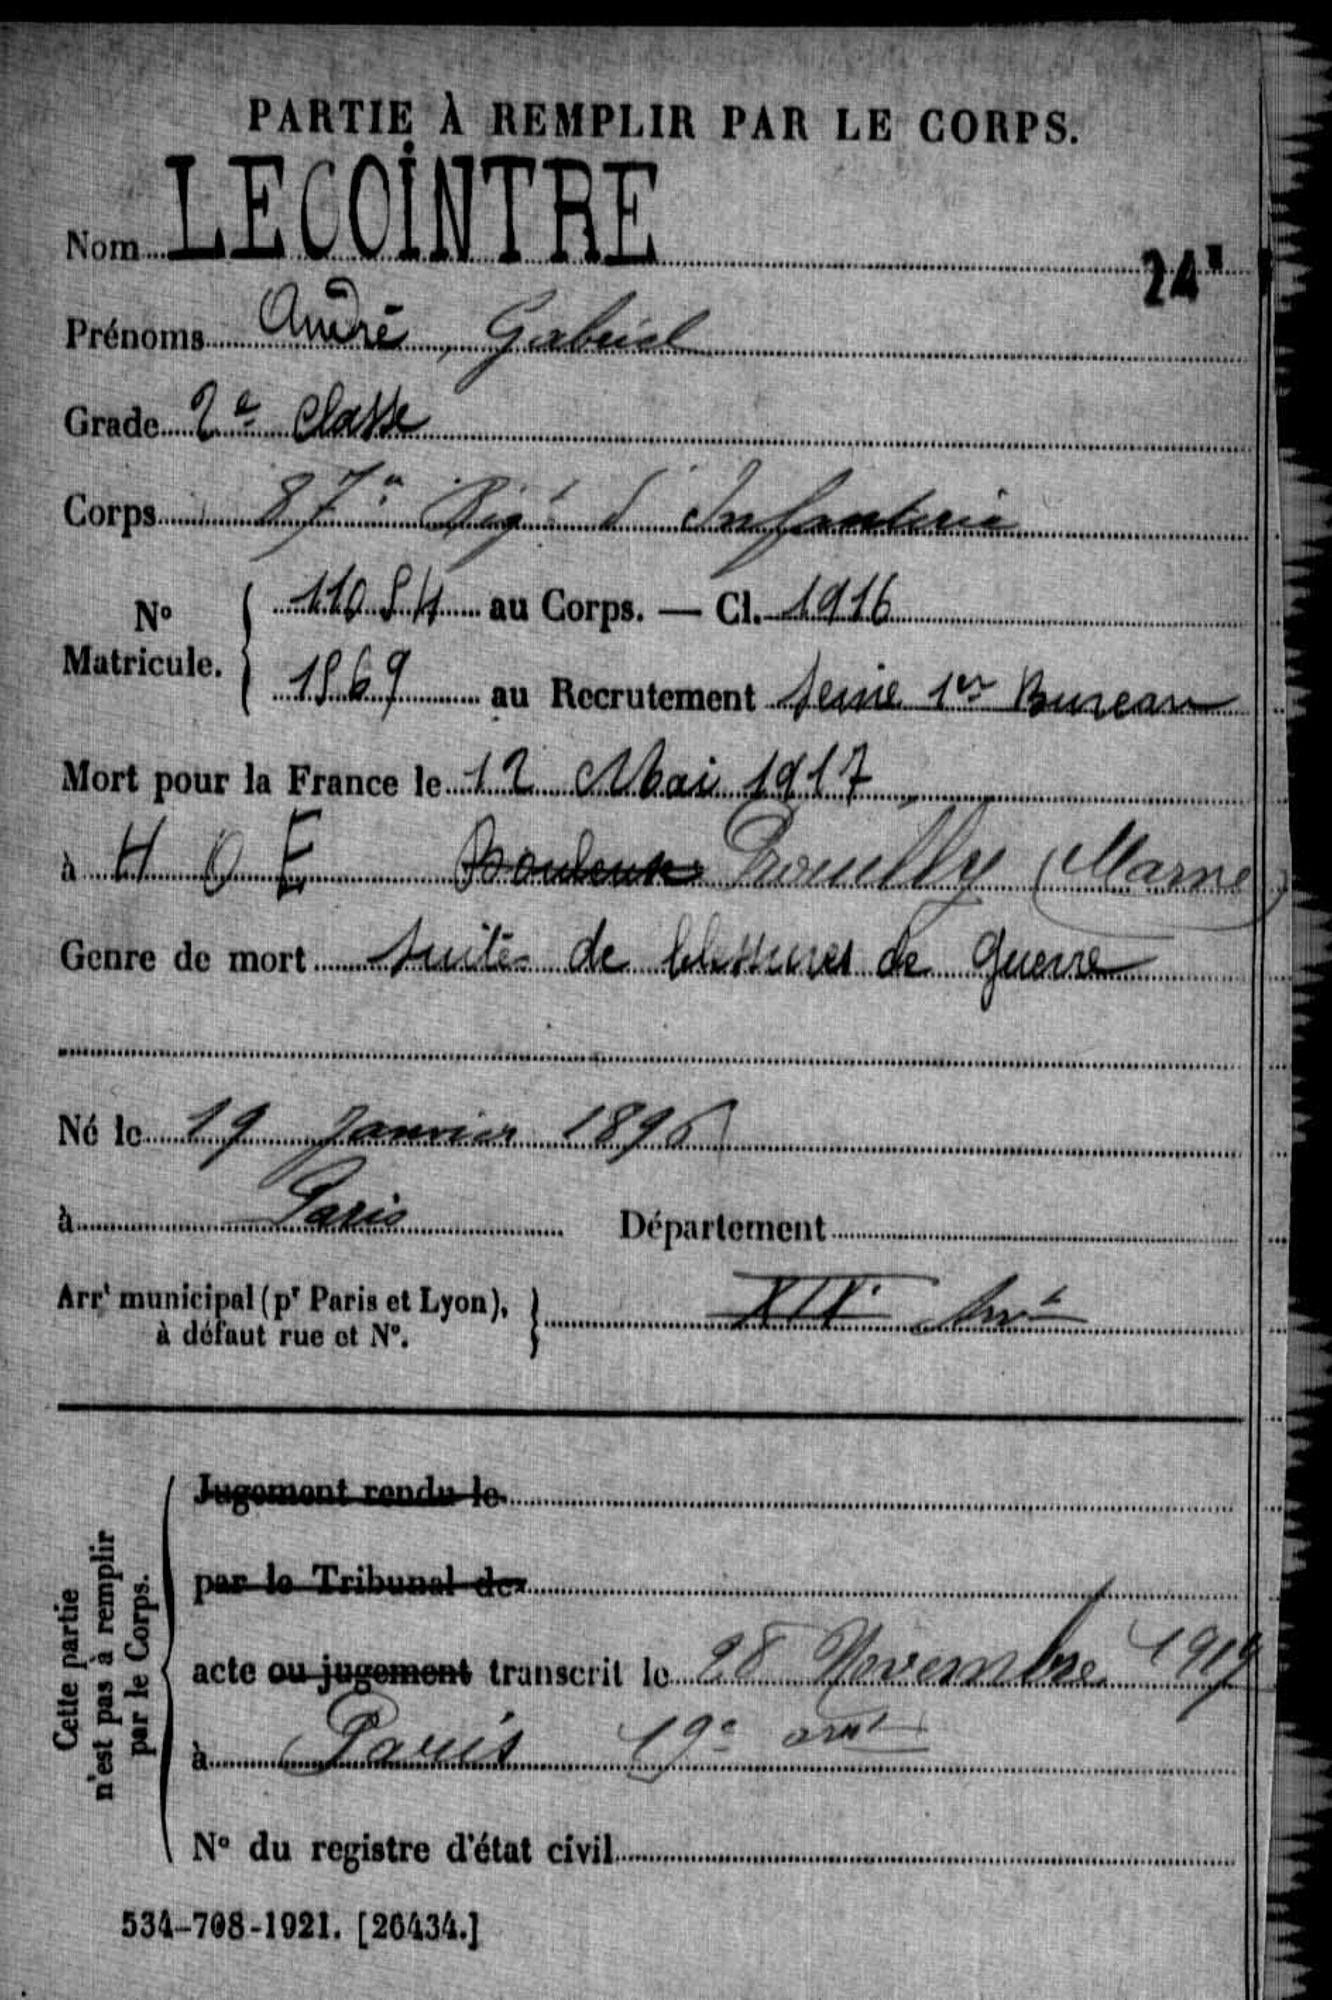 PARTIE À REMPLIR PAR LE CORPS.
Nom LECOINTRE
24
Prénoms André, Gabriel
Grade 2e classe
Corps 87e Régt d'Infanterie
No Matricule. 11054 au Corps. — Cl. 1916
1569 au Recrutement Seine 1er Bureau
Mort pour la France le 12 Mai 1917
à H O E Bouleuse Prouilly (Marne)
Genre de mort suites de blessures de guerre
Né le 19 Janvier 1896
à Paris Département
Arrt municipal (pr Paris et Lyon), à défaut rue et No. XIXe Arrt
Cette partie n'est pas à remplir par le Corps.
Jugement rendu le
par le Tribunal de
acte ou jugement transcrit le 28 Novembre 1917
à Paris 19e arrt
No du registre d'état civil
534-708-1921. [26434.]